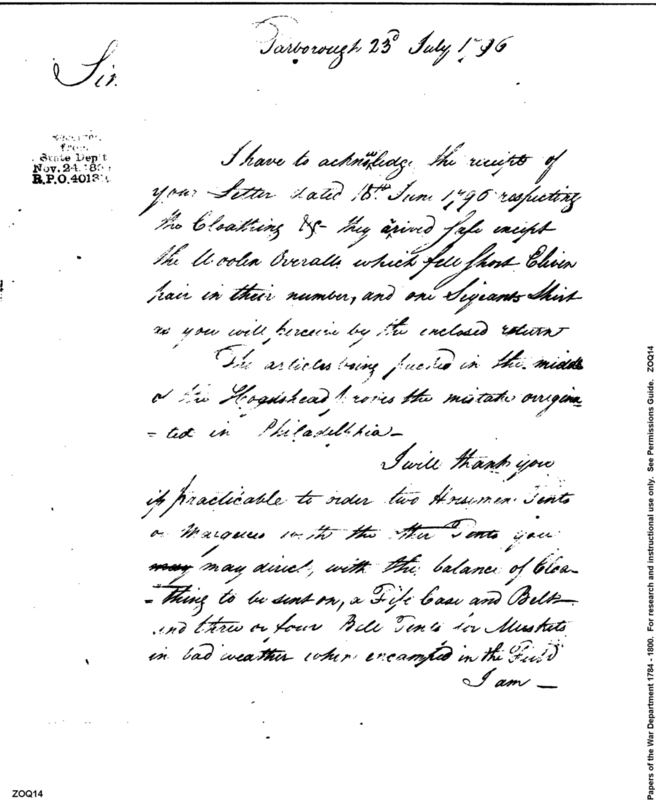 Tarborough 23d July 1796
Sir
Received
from
State Dep't
Nov. 24. 189
R.P.O. 4013
I have to acknowledge the receipt of
your Letter dated 18th June 1796 respecting
the Cloathing &c they arived safe except
the Woolen Overalls which fell short Eleven
pair in their number, and one Sigeants Shirt
as you will perceive by the enclosed return
The articles being packed in the middle
of the Hogshead proves the mistake origina
= ted in Philadelphia_
I will thank you
if practicable to order two Horsemen Tents
or Marquees with the other Tents you
may may direct, with the balance of Cloa=
= thing to be sent on, a Fife Case and Belt
and three or four Bell Tents for Muskets
in bad weather when encamped in the Field
I am _
ZOQ14
Papers of the War Department 1784 - 1800. For research and instructional use only. See Permissions Guide. ZOQ14